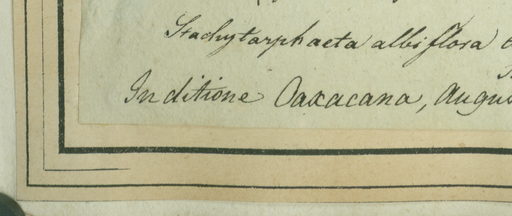 Stachytarphaeta albiflora
In ditione Oaxacana, Augu